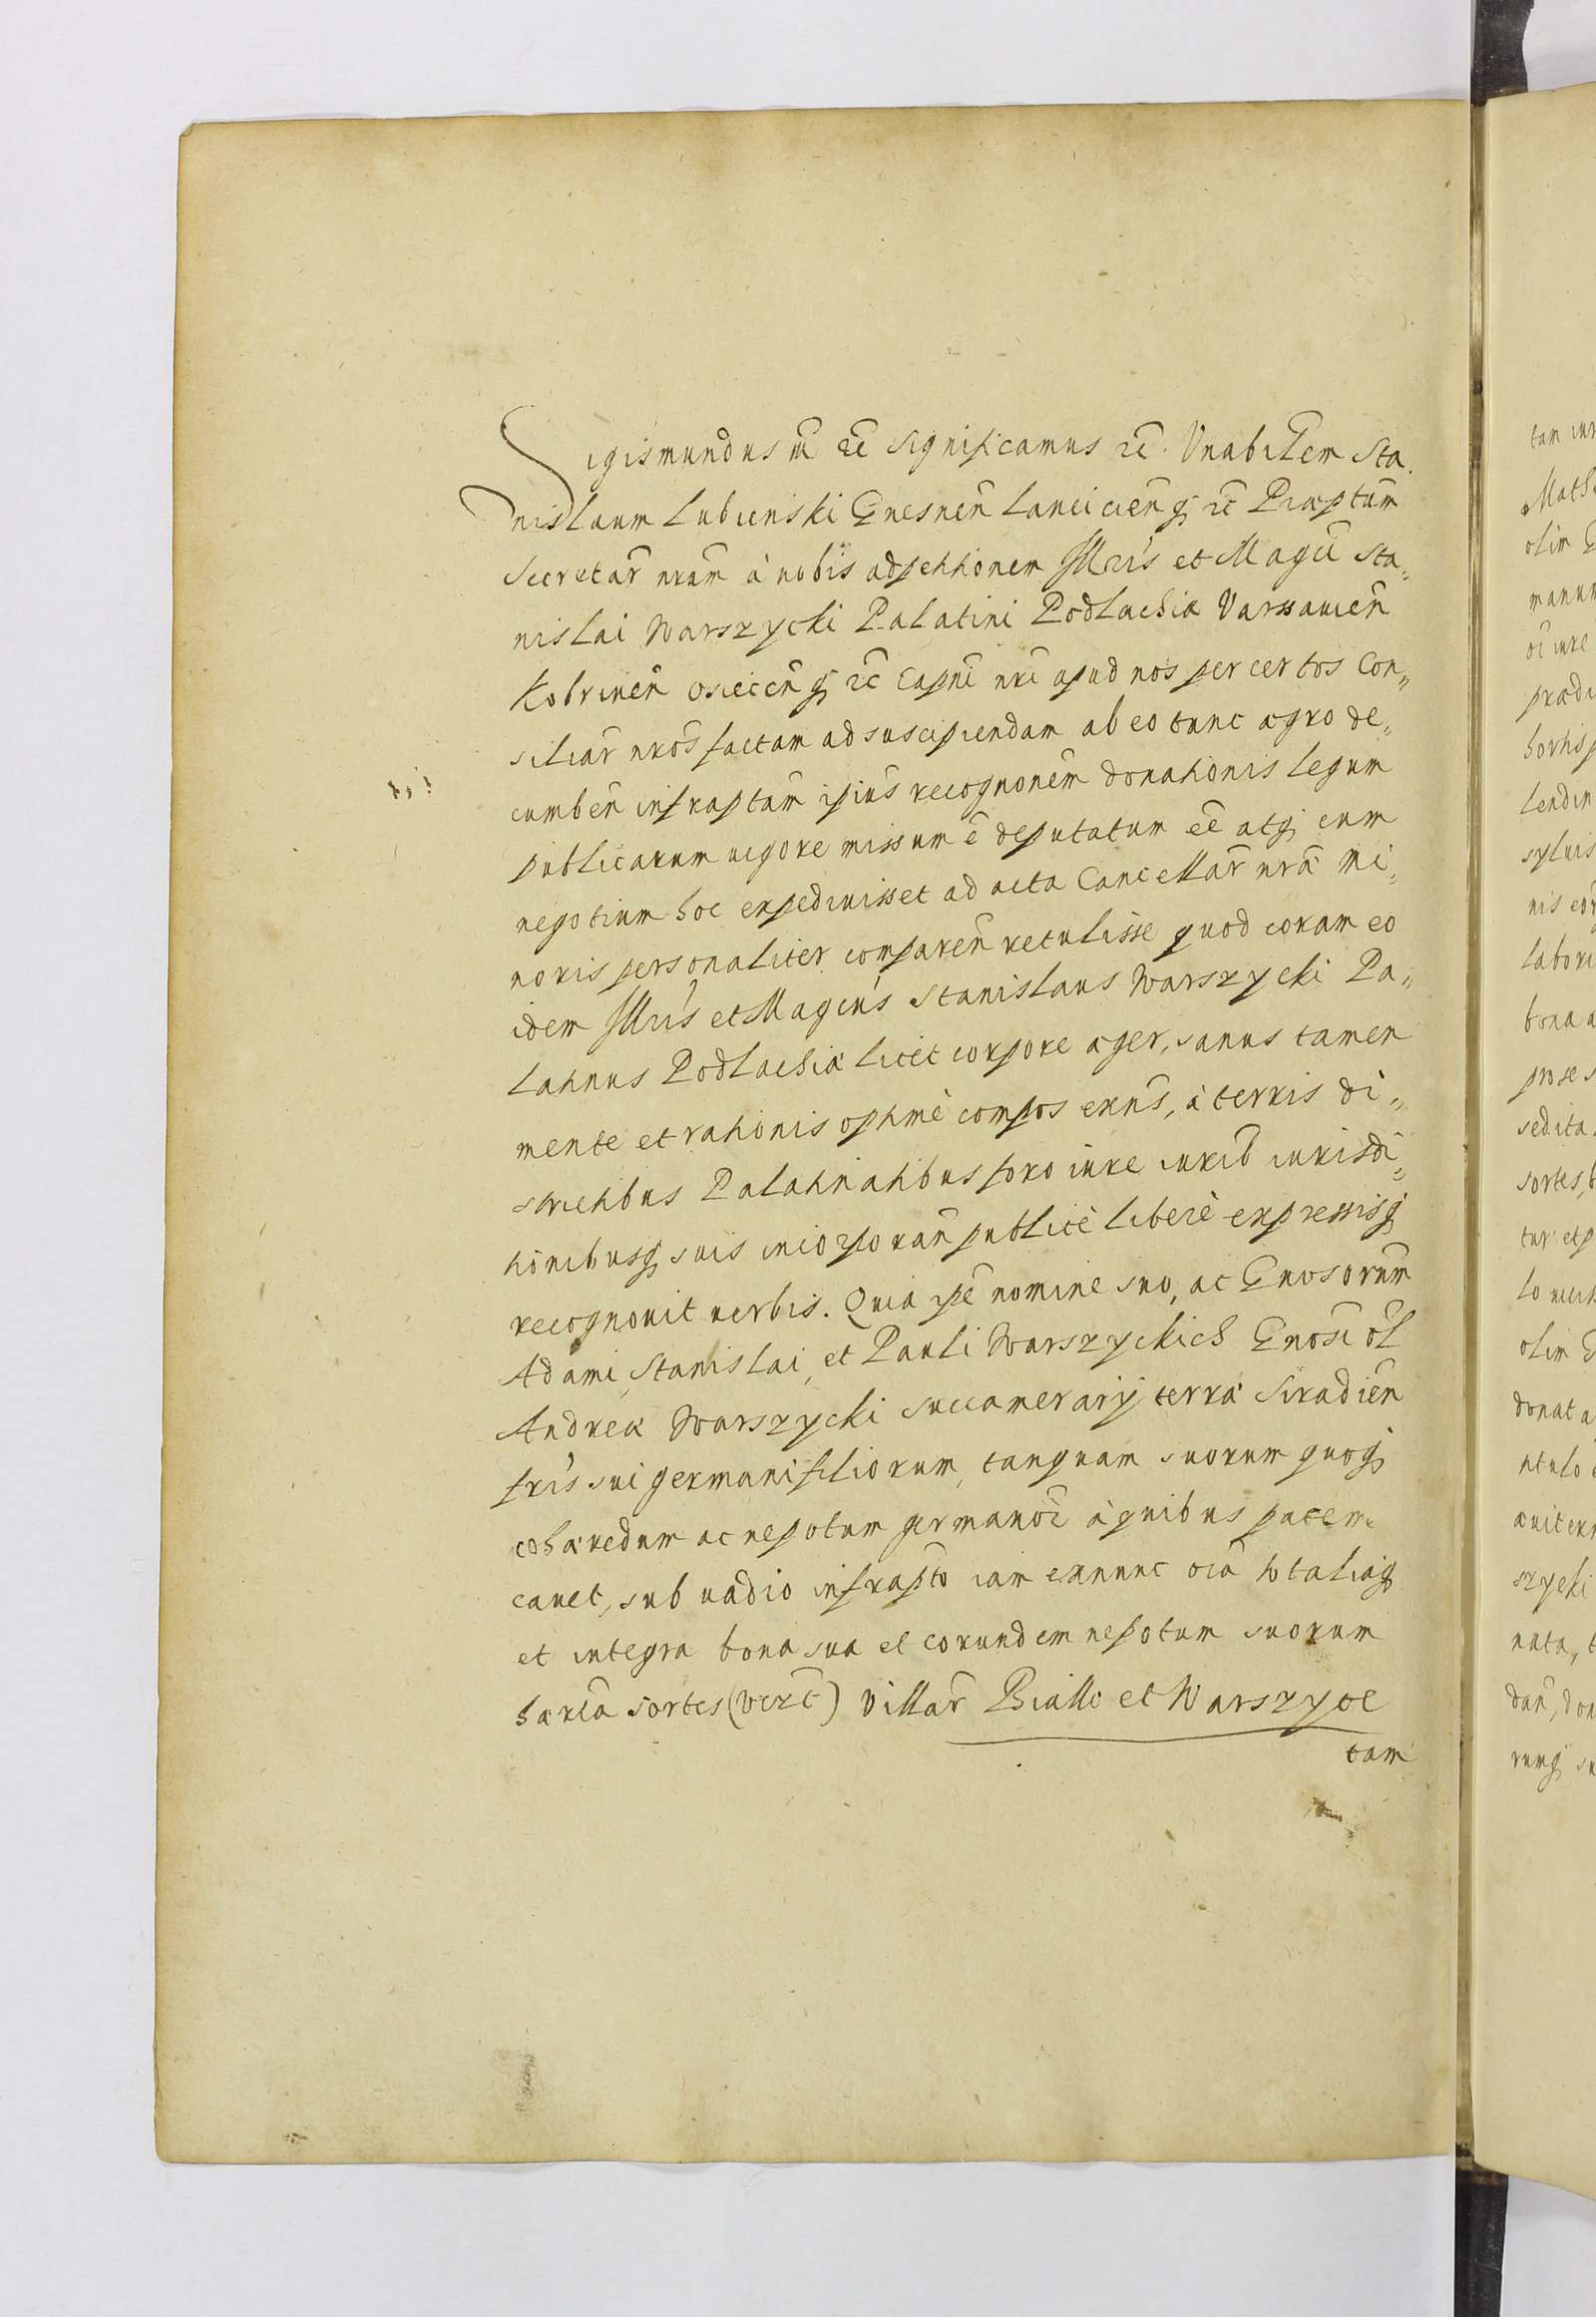 Sigismundus III etc significamus etc. Vnabilem Sta-
nislaum Lubienski Gnesnen̄ Lanciciēn q̨ etc Præptum
Secretar̄ nrum à nobis ad pettionem Illris et Magci Sta„
nislai Warszycki Palatini Podlachiæ Varssauien̄
Kobrinen̄ Osiecen̄ q̨ etc Capnei nri apud nos per certos Con„
siliar̄ nros factam ad suscipiendam ab eo tunc ægro de„
cumben̄ infraptam ipius recognonem donationis legum
publicarum uigore missum è deputatum ee̅ atq̨ cum
negotium hoc expediuisset ad acta Cancellar̄ nræ Mi„
noris personaliter comparen̄ retulisse quod coram eo
idem Illris et Magcus Stanislaus Warszycki Pa„
latinus Podlachiæ licet corpore æger, sanus tamen
mente et rationis optimè compos exns, à terris di„
strictibus Palatinatibus foro iure iurib iurisdi„
tionibusq̨ suis incorporan̄ publicè liberè expressisq̨
recognouit uerbis. Quia ipe nomine suo, ac Gnosorum
Adami, Stanislai, et Pauli Warszyckich Gnosi ol
Andreæ Warszycki succamerarij terræ Siradien̄
fris sui germani filiorum, tanquam suorum quoq̨
cohæredum ac nepotum germanor̄ à quibus pacem
cauet, sub uadio infrapto iam exnunc oia totaliaq̨
et integra bona sua et eorundem nepotum suorum
hærea sortes (uezt) Villar̄ Bialle et Warszyce
tam